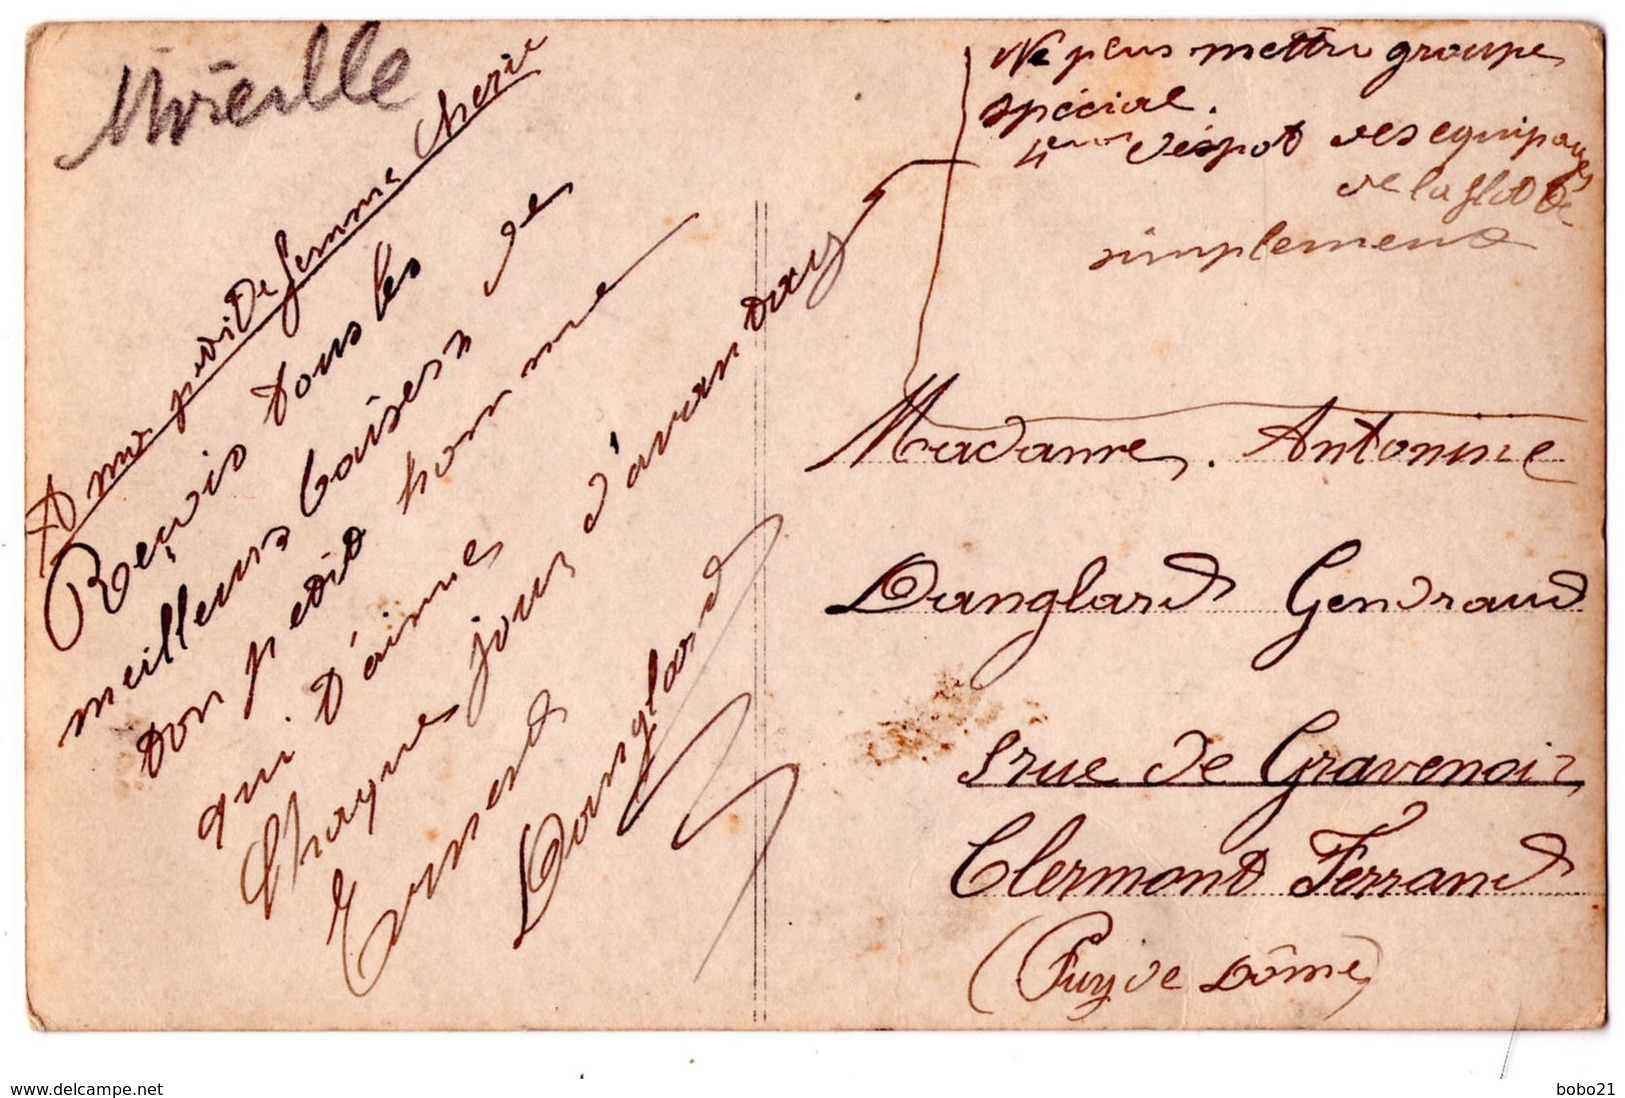 Mireille
A ma petite femme cherie
Reçois tous les
meilleurs baisers de
ton petit homme
qui t'aimes
chaques jours d'avantag
Ernest
Danglard
Ne plus mettre groupe
spécial.
déspot des equipages
de la flotte
simplement
Madame. Antonine
Danglard Gendraud
rue de Gravenoir
Clermont Ferrand
(Puy de Dôme)
www.delcampe.net
bobo21